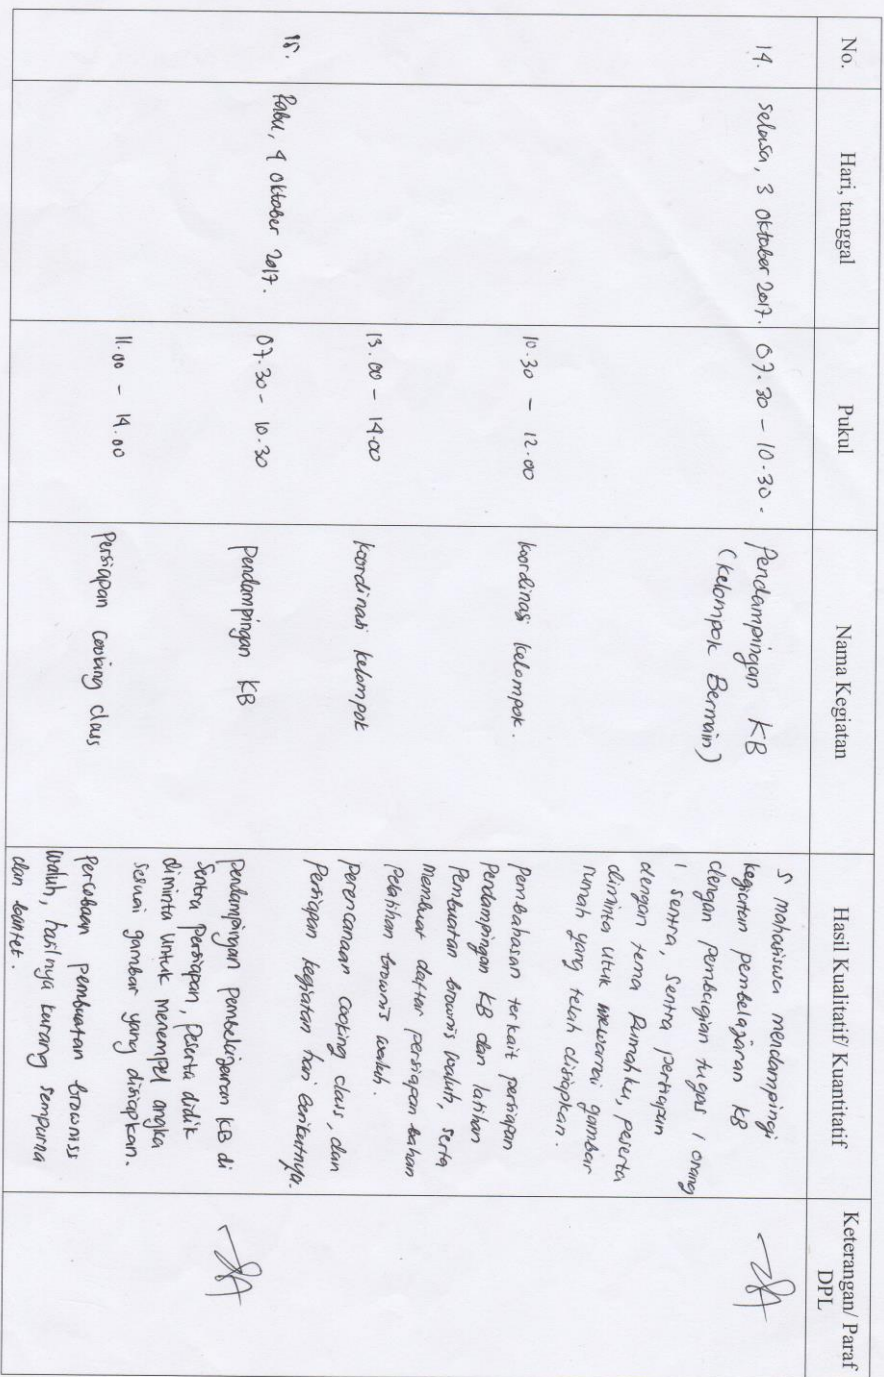 No.
Hari, tanggal
Pukul
Nama Kegiatan
Hasil Kualitatif/ Kuantitatif
Keterangan/ Paraf
DPL
14.
Selasa, 3 Oktober 2017.
07.30 - 10.30.
Pendampingan KB
(Kelompok Bermain)
5 mahasiswa mendampingi
kegiatan pembelajaran KB
dengan pembagian tugas 1 orang
1 sentra, sentra persiapan
dengan tema Rumahku, peserta
diminta utuk mewarnai gambar
rumah yang telah disiapkan.
10.30 - 12.00
koordinasi kelompok.
pembahasan terkait persiapan
Pendampingan KB dan latihan
Pembuatan brownis waluh, serta
membuat daftar persiapan bahan
Pelatihan brownis waluh.
13.00 - 14.00
koordinasi kelompok
perencanaan cooking class, dan
Persiapan kegiatan hari berikutnya.
15.
Rabu, 4 Oktober 2017.
07.30 - 10.30
pendampingan KB
pendampingan pembelajaran KB di
Sentra persiapan, peserta didik
diminta untuk menempel angka
sesuai gambar yang disiapkan.
11.00 - 14.00
Persiapan cooking class
Percobaan pembuatan browniss
waluh, hasilnya kurang sempurna
dan bantet.